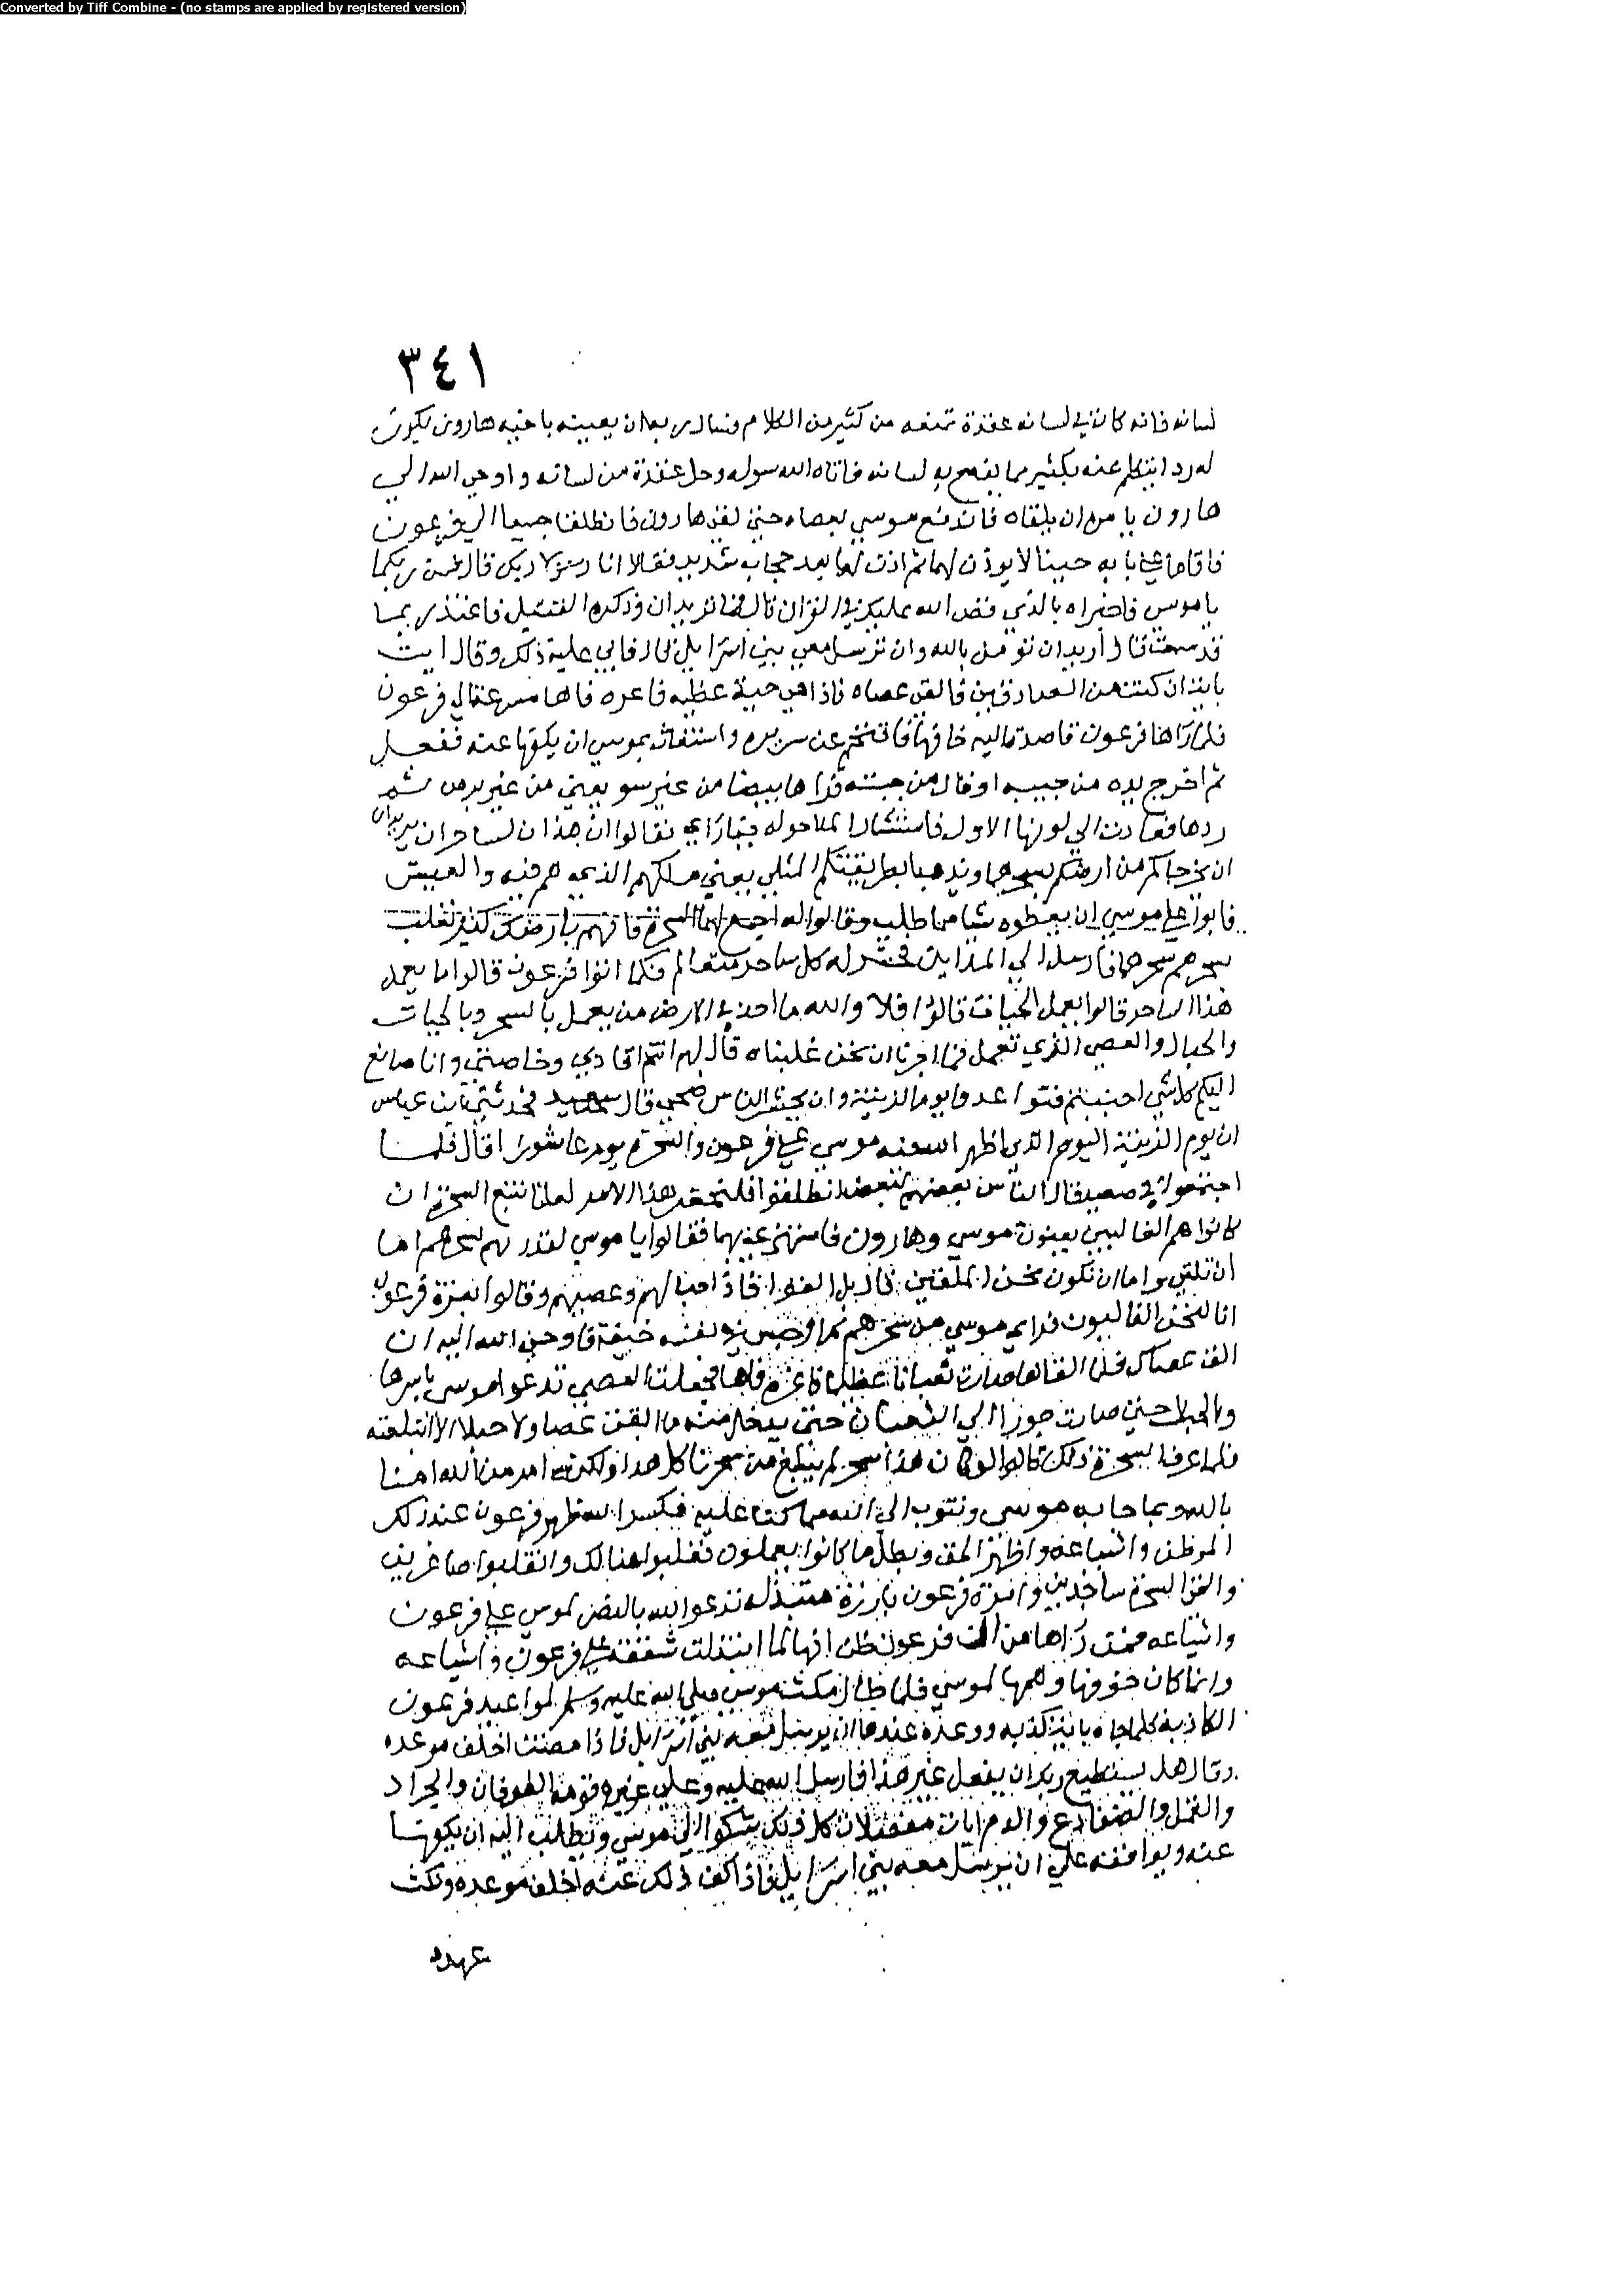 Converted by Tiff Combine - (no stamps are applied by registered version)
٣٤١
لسانه فانه كان في لسانه عقدة تمنعه من كثير من الكلام وسال ربه ان يعينه باخيه هارون يكون
له ردا يتكلم عنه بكثير مما يفصح به لسانه فاتاه الله سوله وحل عقدة من لسانه واوحي الله الي
هارون يامره ان يلقاه فاندفع موسي بعصاه حتي لقي هارون فانطلقا جميعا الي فرعون
فاقاما علي بابه حينا لا يوذن لهما ثم اذن لهما بعد حجاب شديد فقالا انا رسولا ربك قال فمن ربكما
ياموسي فاخبراه بالذي قص الله عليك في القران قال فما تريدان وذكره القتيل فاعتذر بما
قد سمعت قال أريد ان تومن بالله وان ترسل معي بني اسرايل فابي عليه ذلك وقال ايت
باية ان كنت من الصادقين فالقي عصاه فاذا هي حية عظيمة فاغره فاها مسرعة الي فرعون
فلما رآها فرعون قاصدة اليه خافها فاقتحم عن سريره واستغاث بموسي ان يكفها عنه ففعل
ثم اخرج يده من جيبه او قال من جبته فراها بيضا من غير سو يعني من غير برص ثم
ردها فعادت الي لونها الاول فاستشار الملا حوله فيما رآي فقالوا ان هذان لساحران يريدان
ان يخرجاكم من ارضكم بسحرهما ويذهبا بطريقتكم المثلي يعني ملكهم الذي هم فيه والعيش
فابوا علي موسي ان يعطوه شيا مما طلب وقالوا له اجمع لهما السحرة فانهم بارضك كثير تغلب
بسحرهم سحرهما فارسل الي المداين فحشر له كل ساحر متعالم فلما اتوا فرعون قالوا ما يعمل
هذا الساحر قالوا يعمل الحيات قالوا فلا والله ما احد في الارض من يعمل بالسحر وبالحيات
والحبال والعصي الذي نعمل فما اجرنا ان نحن غلبناه قال لهم انتم اقاربي وخاصتي وانا صانع
اليكم كل شي احببتم فتواعدوا يوم الزينة وان يحشر الناس ضحي قال سعيد فحدثني ابن عباس
ان يوم الزينة اليوم الذي اظهر الله فيه موسي علي فرعون والسحرة يوم عاشورا قال فلما
اجتمعوا في صعيد قال الناس بعضهم لبعض انطلقوا فلنحضر هذا الامر لعلنا نتبع السحرة ان
كانوا هم الغالبين يعنون موسي وهارون فاستهزءا بهما فقالوا يا موسي لقدرتهم بسحرهم اما
ان تلقي واما ان نكون نحن الملقين قال بل القوا فاذا حبالهم وعصيهم وقالوا بعزة فرعون
انا لنحن الغالبون فراي موسي من سحرهم ما اوجس في نفسه خيفة فاوحي الله اليه ان
الق عصاك فلما القاها صارت ثعبانا عظيما فاغره فاها فجعلت العصي تدعوا موسي باسرها
والحبال حتي صارت جوزا الي الثعبان حتي يدخل فيه ما ابقت عصا ولا حبلا الا ابتلعته
فلما عرف السحرة ذلك قالوا لو كان هذا سحر لم يبلغ من سحرنا كل هذا ولكنه امر من الله امنا
بالله وبما جا به موسي ونتوب الي الله مما كنا عليه فكسر الله ظهر فرعون عند ذلك
الموطن واشياعه واظهر الحق وبطل ما كانوا يعملون فغلبوا هنالك وانقلبوا صاغرين
والقي السحرة ساجدين وامراة فرعون بارزة متبذلة تدعوا الله بالنصر لموسي علي فرعون
واشياعه فمن رآها من ال فرعون ظن انها انما ابتذلت شفقة علي فرعون واشياعه
وانما كان حزنها وهمها لموسي فلما طال مكث موسي صلي الله عليه وسلم لمواعيد فرعون
الكاذبة كلما جاه باية كذبه ووعده عندها ان يرسل معه بني اسرايل فاذا مضت اخلف موعده
وقال هل يستطيع ربك ان يفعل غير هذا فارسل الله عليه وعلي قومه الطوفان والجراد
والقمل والضفادع والدم ايات مفصلات كل ذلك يشكوا الي موسي ويطلب اليه ان يكفها
عنه ويوافقه علي ان يرسل معه بني اسرايل فاذا كف ذلك عنه اخلف موعده ونكث
عهده